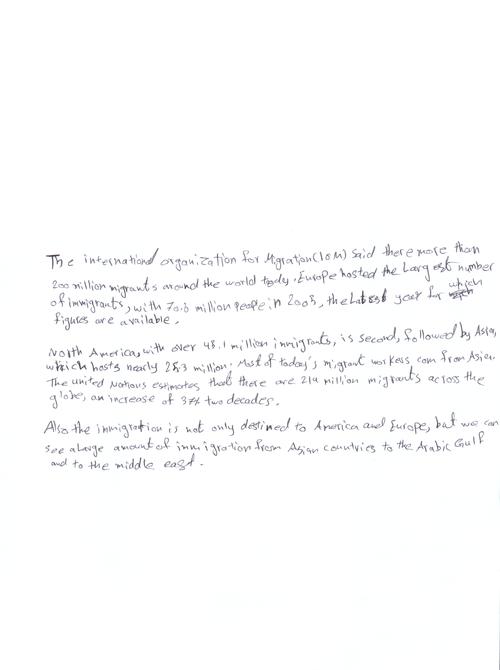 The international organization for Migration (IOM) Said there more than
200 million migrants around the world tody. Europe hosted the Largest number
of immigrants, with 70.6 million people in 2005, the Latest year for which
figures are available.
North America, with over 45.1 million immigrants, is second, followed by Asia,
which hosts nearly 25.3 million. Most of today's migrant workers com from Asia.
The united Nations estimates that there are 214 million migrants across the
globe, an increase of 37% two decades.
Also the immigration is not only destined to America and Europe, but we can
see a Large amount of immigration from Asian countries to the Arabic Gulf
and to the middle east.